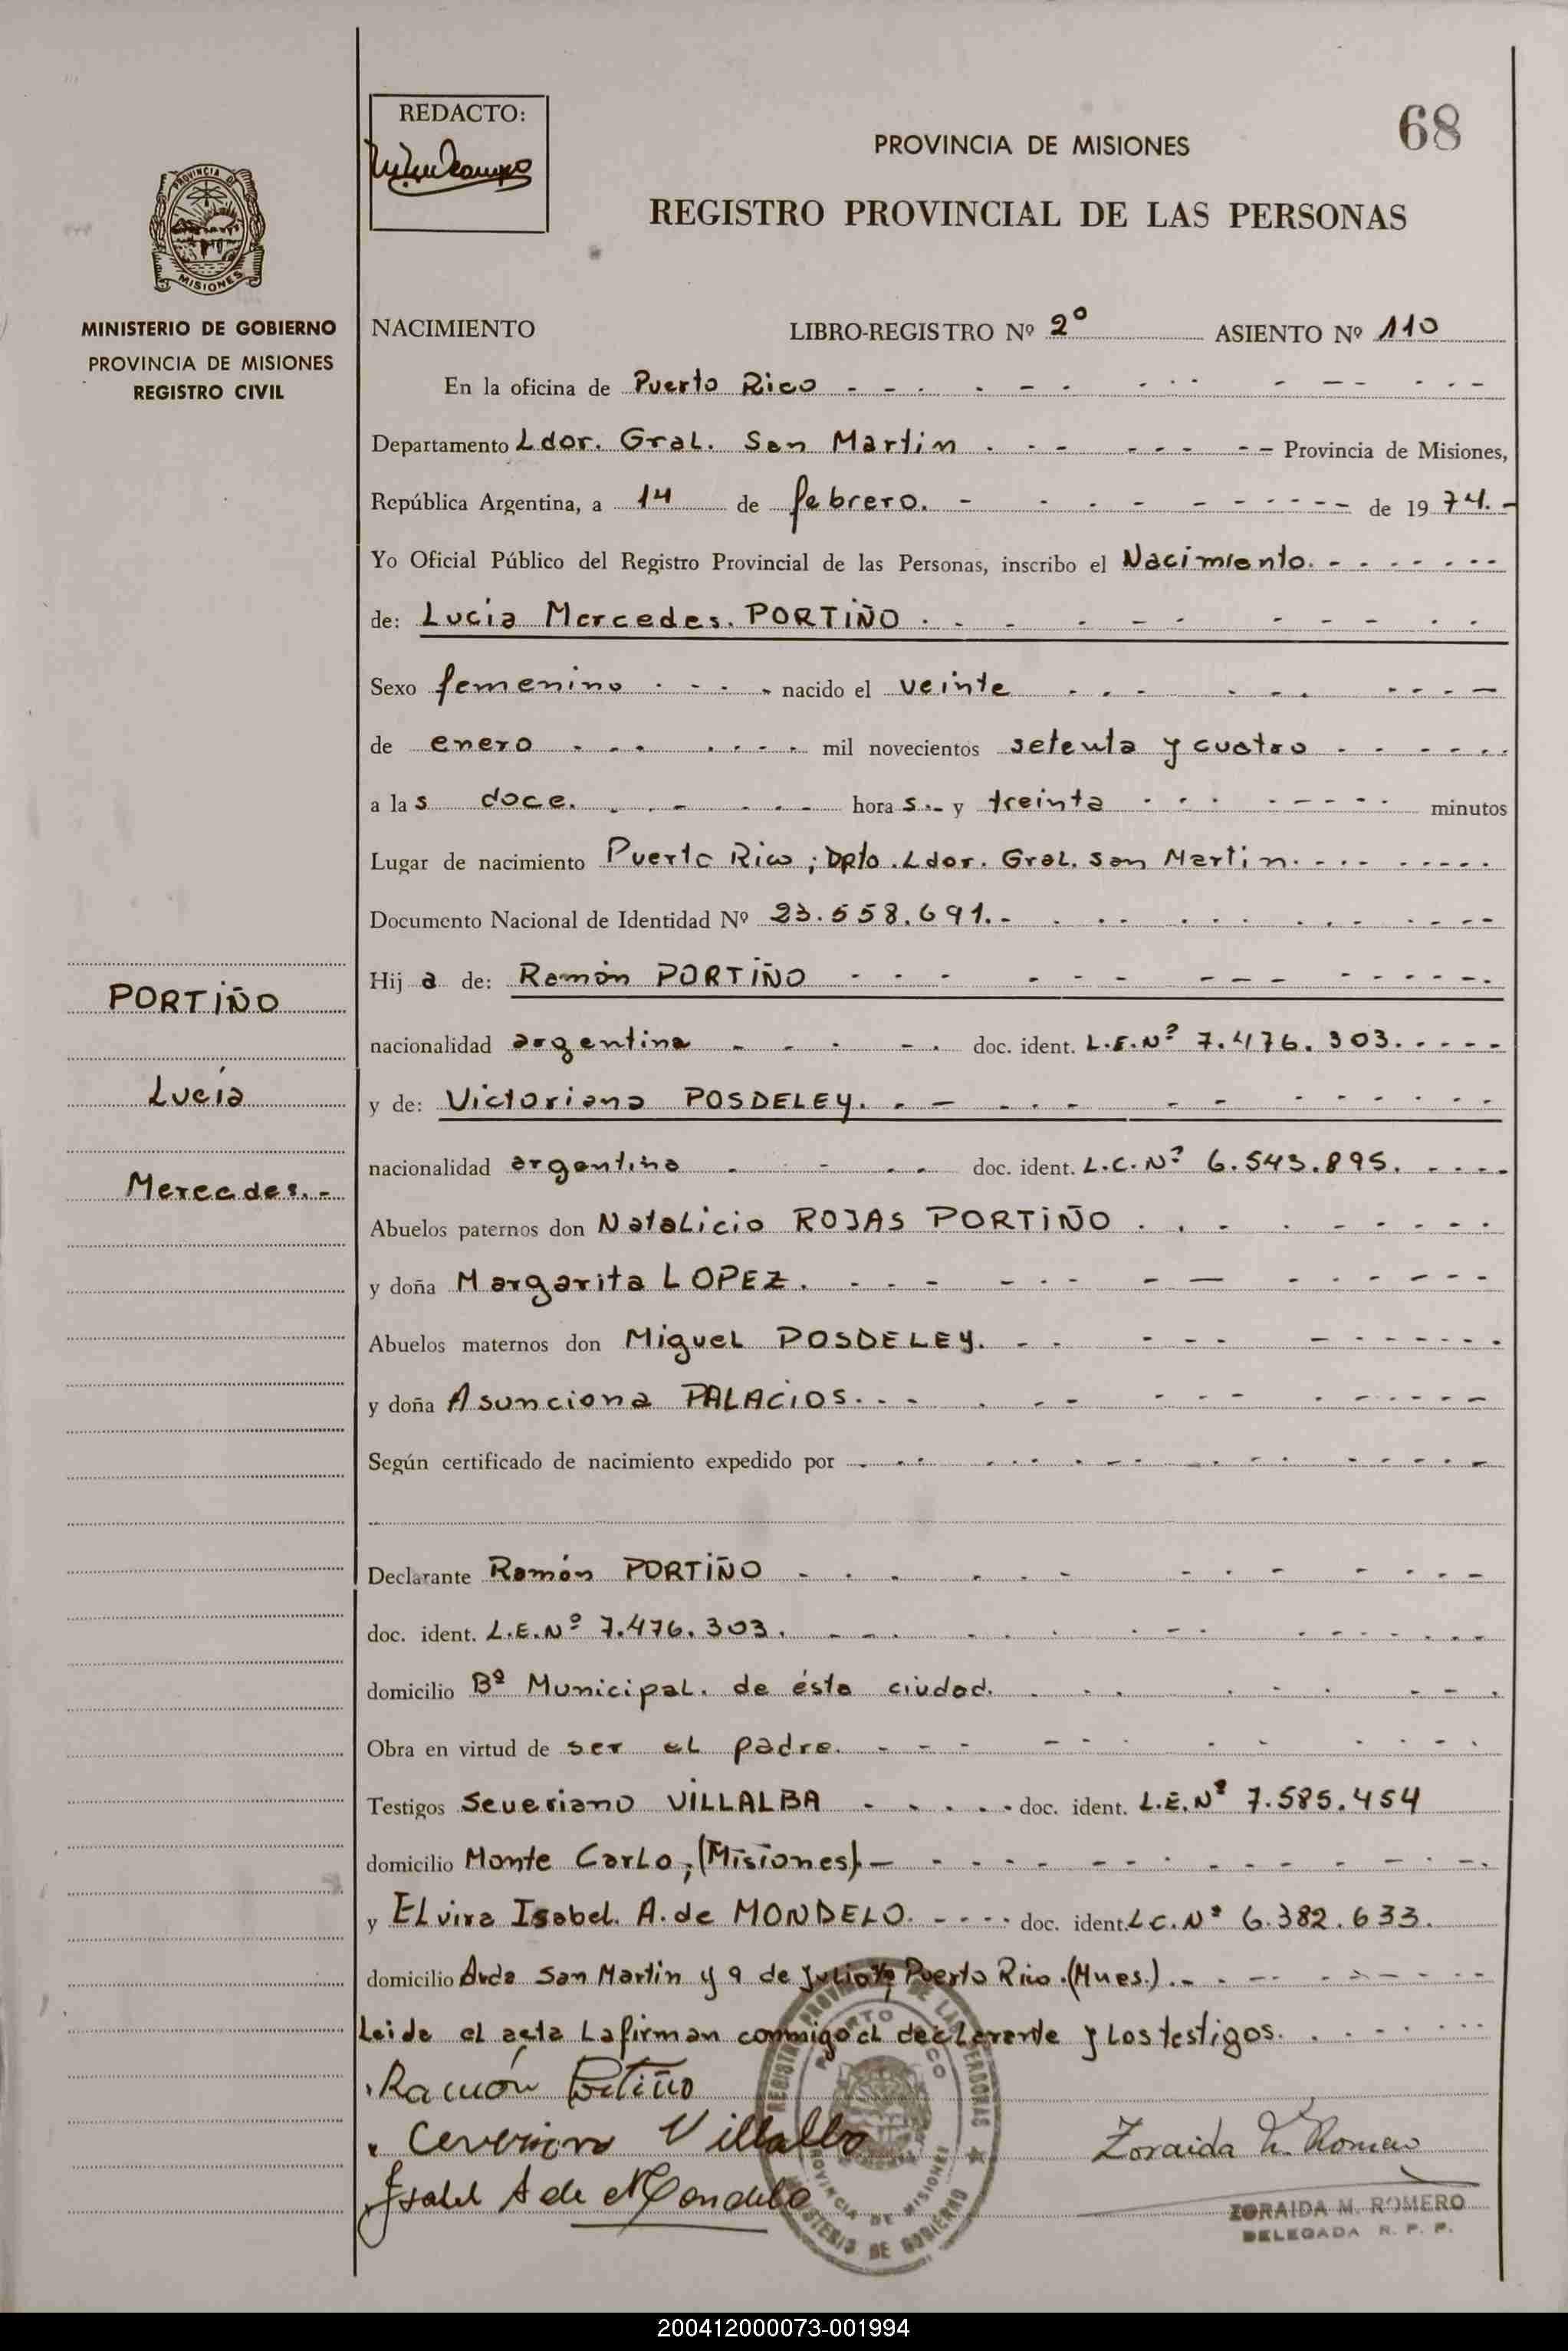 REDACTO:
68
PROVINCIA DE MISIONES
REGISTRO PROVINCIAL DE LAS PERSONAS
PROVINCIA DE
MISIONES
MINISTERIO DE GOBIERNO
PROVINCIA DE MISIONES
REGISTRO CIVIL
NACIMIENTO LIBRO-REGISTRO Nº 2º ASIENTO Nº 110
En la oficina de Puerto Rico
Departamento Ldor. Gral. San Martin Provincia de Misiones,
República Argentina, a 14 de febrero. de 1974.-
Yo Oficial Público del Registro Provincial de las Personas, inscribo el Nacimiento.
de: Lucía Mercedes. PORTIÑO
Sexo femenino nacido el veinte
de enero mil novecientos setenta y cuatro
a las doce. horas.- y treinta minutos
Lugar de nacimiento Puerto Rico; Dpto. Ldor. Gral. San Martin.
Documento Nacional de Identidad Nº 23.558.691.-
Hija de: Ramón PORTIÑO
nacionalidad argentina doc. ident. L.E.Nº 7.476.303.
y de: Victoriana POSDELEY.
nacionalidad argentina doc. ident. L.C.Nº 6.543.895.
Abuelos paternos don Natalicio ROJAS PORTIÑO
y doña Margarita LOPEZ.
Abuelos maternos don Miguel POSDELEY.
y doña Asunciona PALACIOS.
Según certificado de nacimiento expedido por
Declarante Ramón PORTIÑO
doc. ident. L.E.Nº 7.476.303.
domicilio Bº Municipal. de ésta ciudad.
Obra en virtud de ser el padre.
Testigos Severiano VILLALBA doc. ident. L.E.Nº 7.585.454
domicilio Monte Carlo, (Misiones).-
y Elvira Isabel. A. de MONDELO. doc. ident. L.C.Nº 6.382.633.
domicilio Avda San Martin y 9 de Julio Puerto Rico.(Mnes.).-
Leida el acta la firman conmigo el declarante y los testigos.
Ramón Portiño
Ceveriano Villalba
Isabel A de Mondelo
Zoraida M. Romero
ZORAIDA M. ROMERO
DELEGADA R. P. P.
REGISTRO PROVINCIAL DE LAS PERSONAS
PUERTO RICO
PROVINCIA DE MISIONES
MINISTERIO DE GOBIERNO
PORTIÑO
Lucía
Mercedes.-
200412000073-001994